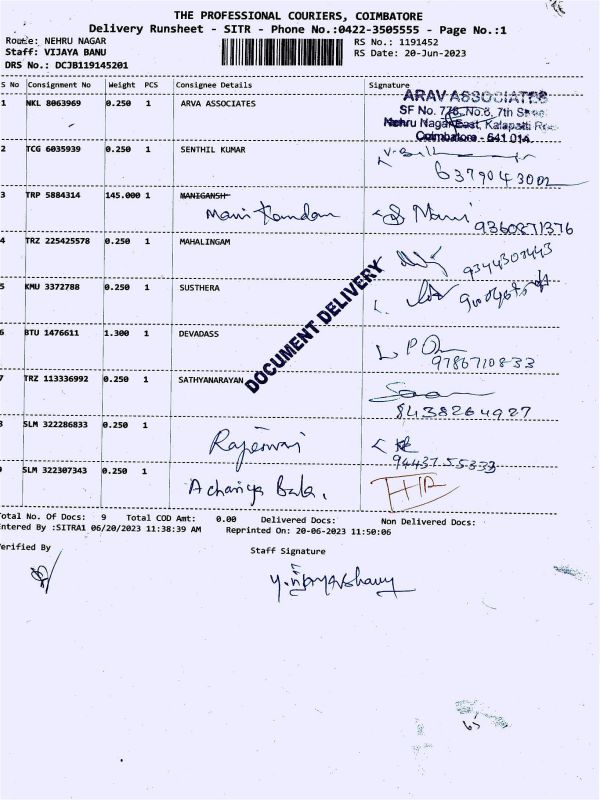 THE PROFESSIONAL COURIERS, COIMBATORE
Delivery Runsheet - SITR - Phone No.:0422-3505555 - Page No.:1
Route: NEHRU NAGAR
RS No.: 1191452
Staff: VIJAYA BANU
RS Date: 20-Jun-2023
DRS No.: DCJB119145201
S No Consignment No Weight PCS Consignee Details Signature
1 NKL 8063969 0.250 1 ARVA ASSOCIATES
ARAV ASSOCIATES
SF No. 776, No.6, 7th Street
Nehru Nagar East, Kalapatti Ro
Coimbatore - 641 014.
2 TCG 6035939 0.250 1 SENTHIL KUMAR
3 TRP 5884314 145.000 1 MANIGANSH
Mani Kandan Mani
9360871376
4 TRZ 225425578 0.250 1 MAHALINGAM
5 KMU 3372788 0.250 1 SUSTHERA
DOCUMENT DELIVERY
6 BTU 1476611 1.300 1 DEVADASS
9786710833
7 TRZ 113336992 0.250 1 SATHYANARAYAN
8438264927
8 SLM 322286833 0.250 1
Rajeswari
9443755333
9 SLM 322307343 0.250 1
Achariya Bala.
Total No. Of Docs: 9 Total COD Amt: 0.00 Delivered Docs: Non Delivered Docs:
Entered By :SITRA1 06/20/2023 11:38:39 AM Reprinted On: 20-06-2023 11:50:06
Verified By
Staff Signature